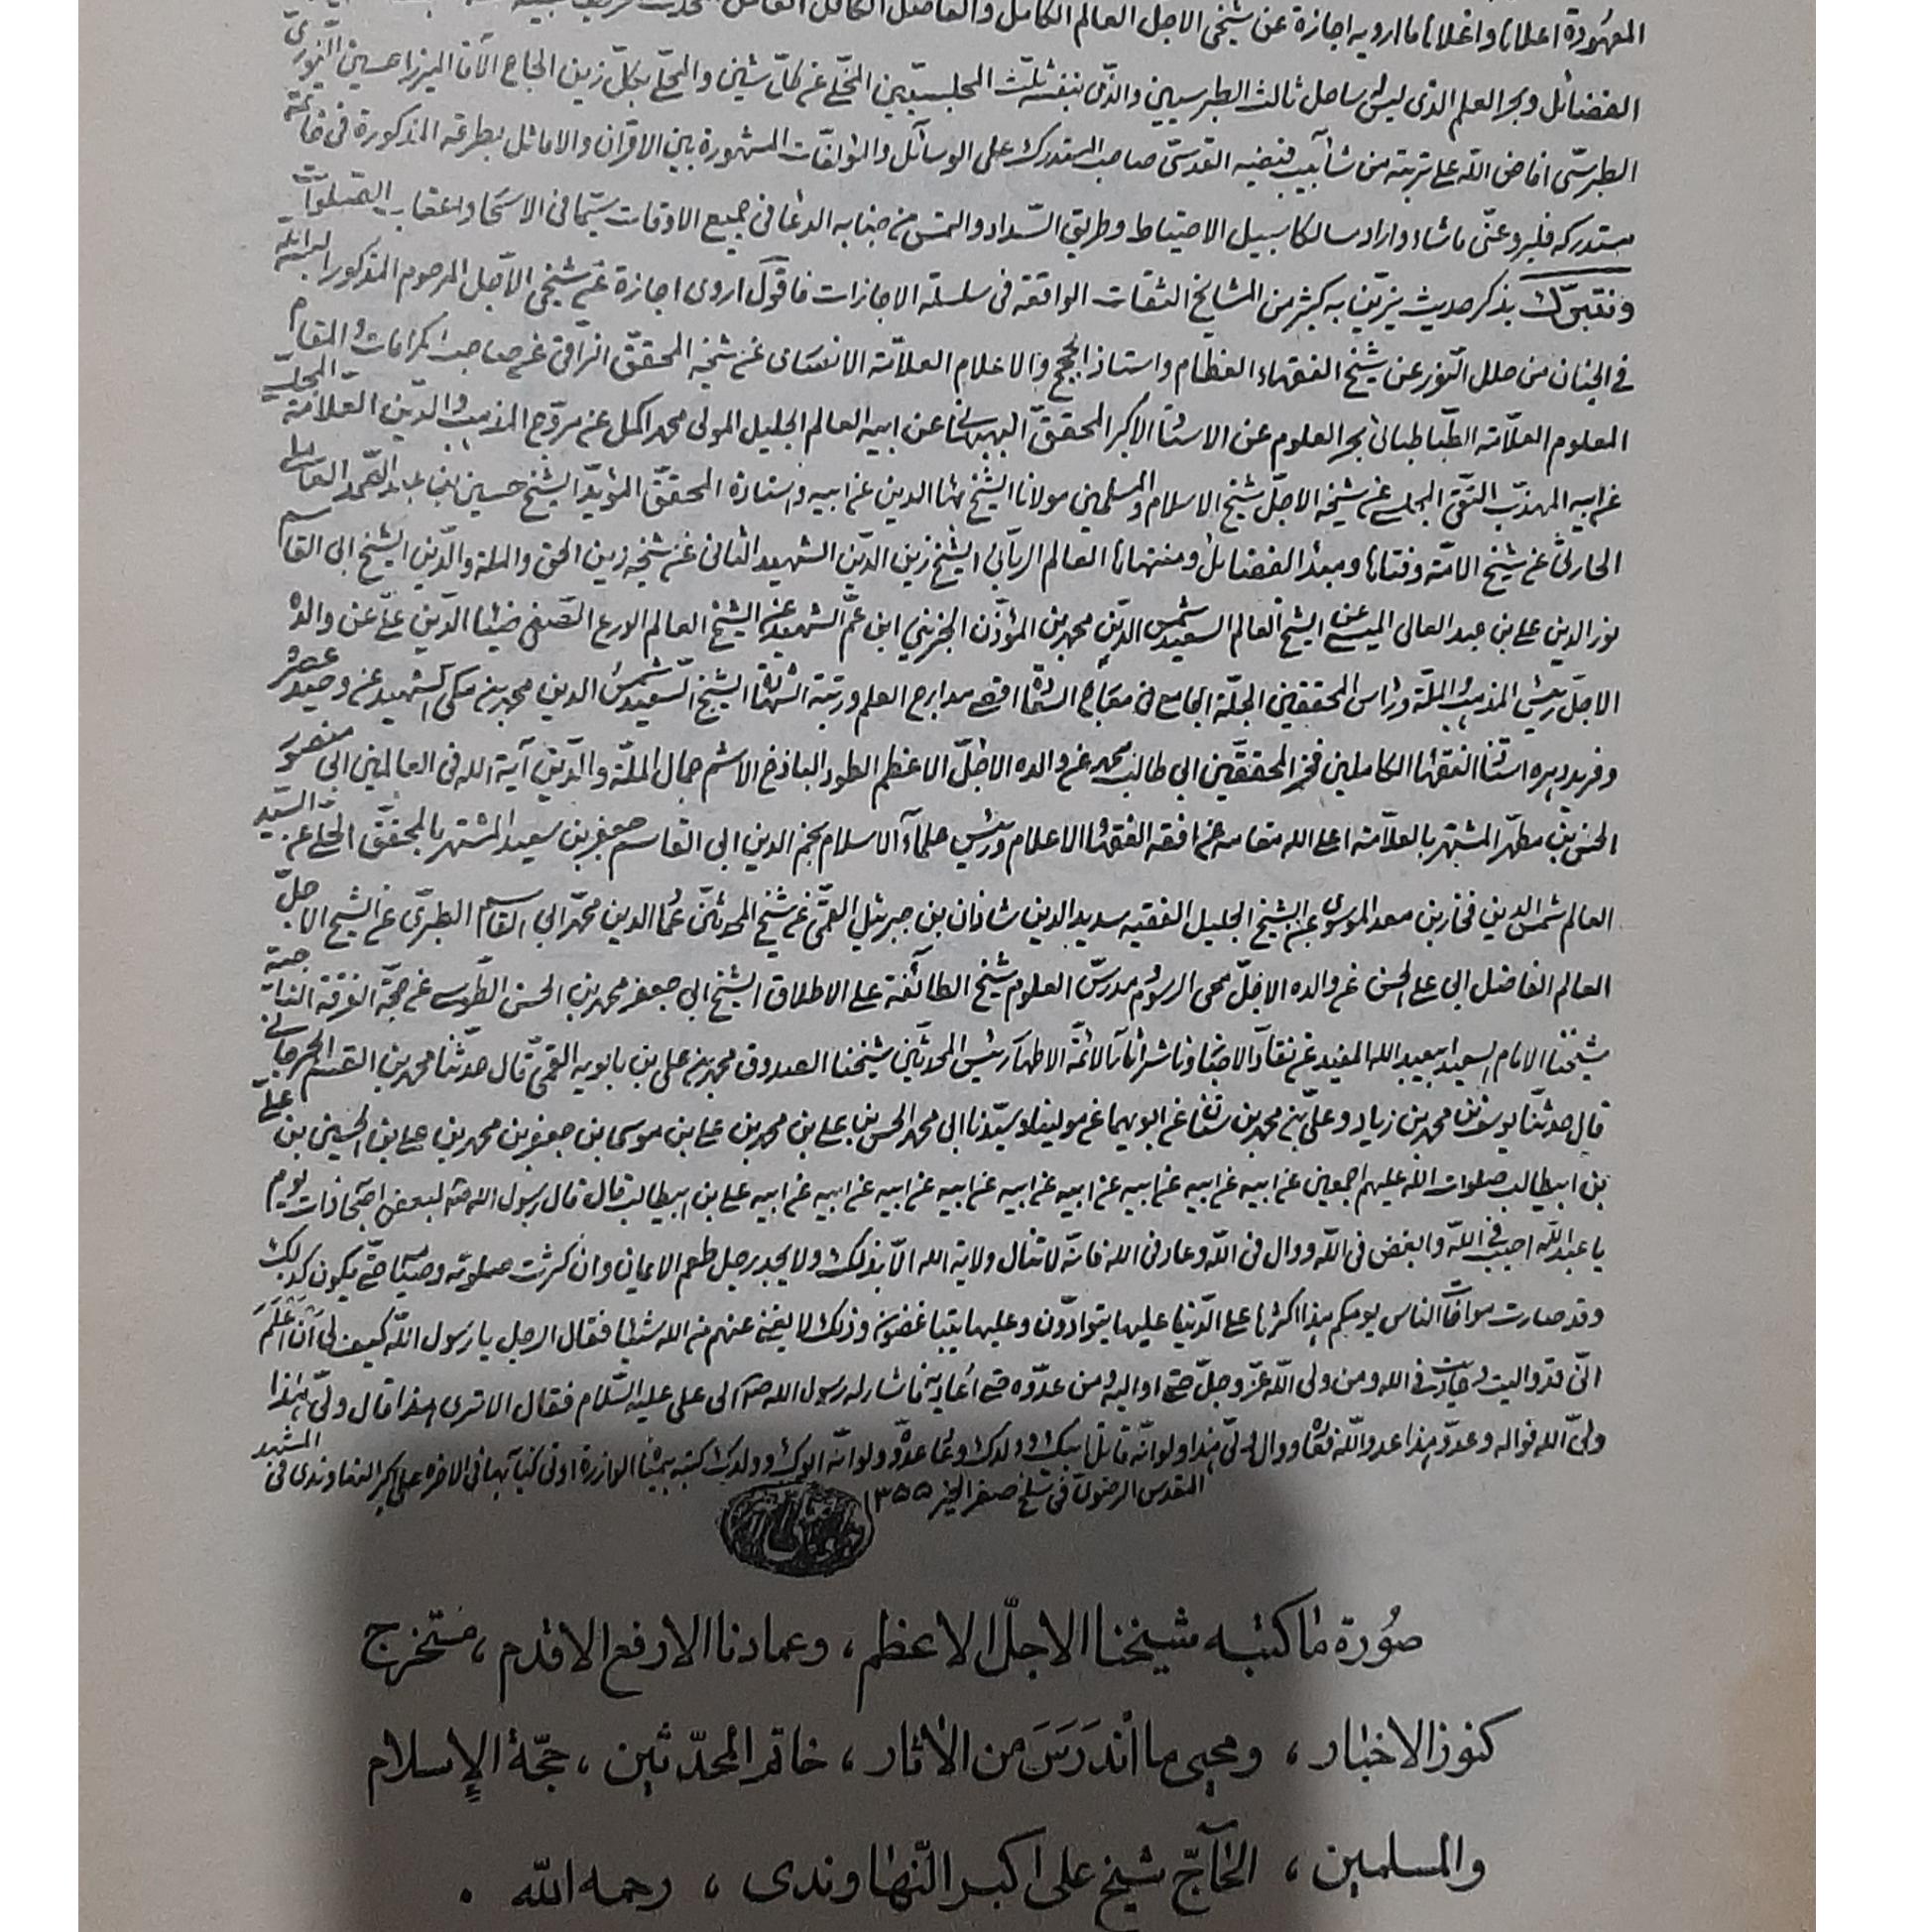 المعهودة اعلانا واغلانا ما ارويه اجازة عن شيخى الاجل العالم الكامل والفاضل
الفضائل وبحر العلم الذى ليس له ساحل ثالث الطبرسيين والذى بنفسه ثلّث المجلسيين المخلّى عن كلّ شين والمحلّى بكلّ زين الحاج الآقا الميرزا حسين النورى
الطبرسّى افاض الله على تربته من شآبيب فيضه القدسىّ صاحب المستدرك على الوسائل والمؤلفات المشهورة بين الاقران والاماثل بطرقه المذكورة فى خاتمة
مستدركه فليرو عنّى ما شاء واراد سالكا سبيل الاحتياط وطريق السّداد والتمس من جنابه الدعا فى جميع الاوقات سيّما فى الاسحار واعقاب الصّلوات
ونتبرّك بذكر حديث يزيّن به كثير من المشايخ الثقات الواقعة فى سلسلة الاجازات فاقول اروى اجازة عن شيخى الاجل المرحوم المذكور البسه الله
فى الجنان من حلل النّور عن شيخ الفقهاء العظام واستاذ الحجج والاعلام العلاّمة الانصارى عن شيخه المحققّ النراقى عن صاحب الكرامات والمقام
المعلوم العلاّمة الطّباطبائى بحر العلوم عن الاستاد الاكبر المحققّ البهبهانى عن ابيه العالم الجليل المولى محمد اكمل عن مروّج المذهب والدّين العلاّمة المجلسى
عن ابيه المهذّب التّقى المجلسى عن شيخه الاجلّ شيخ الاسلام والمسلمين مولانا الشّيخ بهاء الدين عن ابيه واستاده المحققّ المؤيّد الشّيخ حسين بن عبد الصّمد العاملى
الحارثى عن شيخ الامّة وفتاها ومبدء الفضائل ومنتهاها العالم الربّانى الشّيخ زين الدّين الشهيد الثانى عن شيخه زين الحق والملة والدّين الشيخ ابى القاسم
نور الدين على بن عبد العالى الميسى عن الشيخ العالم السعيد شمس الدّين محمد بن المؤذّن الجزينى ابن عمّ الشهيد عن الشيخ العالم الورع الصّفى ضياء الدّين علىّ عن والده
الاجلّ رئيس المذهب والملّة وراس المحققين الجلّة الجامع فى معارج السعادة اقصى مدارج العلم ورتبة الشهادة الشيخ السّعيد شمس الدين محمد بن مكى الشهيد عن وحيد عصره
وفريد دهره استاد الفقهاء الكاملين فخر المحققّين ابى طالب محمد عن والده الاجلّ الاعظم الطود الباذخ الاشم جمال الملّة والدّين آية الله فى العالمين ابى منصور
الحسن بن مطهّر المشتهر بالعلاّمة اعلى الله مقامه عن افقه الفقهاء الاعلام ورئيس علماء الاسلام نجم الدين ابى القاسم جعفر بن سعيد المشتهر بالمحققّ الحلى عن السيّد
العالم شمس الدين فخار بن معد الموسوى عن الشيخ الجليل الفقيه سديد الدين شاذان بن جبرئيل القمّى عن شيخ المحدثين عماد الدين محمّد ابى القاسم الطبرّى عن الشيخ الاجلّ
العالم الفاضل ابى على الحسن عن والده الاجلّ محى الرسوم مدرسّ العلوم شيخ الطائفة على الاطلاق الشيخ ابى جعفر محمد بن الحسن الطّوسى عن حجّة الفرقة الناجية
شيخنا الامام السعيد ابى عبد الله المفيد عن نقاد الاخبار وناشر آثار الائمّة الاطهار رئيس المحدثيّن شيخنا الصدوق محمد بن على بن بابويه القمىّ قال حدّثنا محمد بن القسم الجرجانى
قال حدثنا يوسف بن محمد بن زياد وعلىّ بن محمد بن سنان عن ابويهما عن مولينا وسيّدنا ابى محمد الحسن بن على بن محمد بن على بن موسى بن جعفر بن محمد بن على بن الحسين بن علىّ
بن ابيطالب صلوات الله عليهم اجمعين عن ابيه عن ابيه عن ابيه عن ابيه عن ابيه عن ابيه عن ابيه عن ابيه على بن ابيطالب قال قال رسول الله ص لبعض اصحابه ذات يوم
يا عبد الله احبب فى الله وابغض فى الله ووال فى الله وعاد فى الله فانّه لا تنال ولاية الله الاّ بذلك ولا يجد رجل طعم الايمان وان كثرت صلوته وصيامه حتّى يكون كذلك
وقد صارت مواخاة الناس يومكم هذا اكثرها على الدّنيا عليها يتوادّون وعليها يتباغضون وذلك لا يغنى عنهم من الله شيئا فقال الرجل يا رسول الله كيف لى اَن اَعْلَمَ
انّى قد واليت وعاديت فى الله ومن ولى الله عزّ وجلّ حتى اواليه ومن عدوّه حتى اعاديه فاشار له رسول الله ص الى على عليه السّلام فقال الا ترى هذا قال ولىّ هذا
ولىّ الله فواله وعدوّ هذا عدو الله فعاده ووال ولىّ هذا ولو انّه قاتل ابيك وولدك وعاد عدوّه ولو انّه ابوك وولدك كتبه بيمناه الوازرة اوتى كتابه بها فى الاخره على اكبر النهاوندى فى المشهد
المقدس الرضوى فى سلخ صفر الخير ١٣٥٥
صُورة ما كتبه شيخنا الاجلّ الاعظم ، وعمادنا الارفع الاقدم ، مستخرج
كنوز الاخبار ، ومحيى ما اندَرَسَ من الاثار ، خاتم المحدّثين ، حجّة الإسلام
والمسلمين ، الحآجّ شيخ على اكبر النّهاوندى ، رحمه الله .